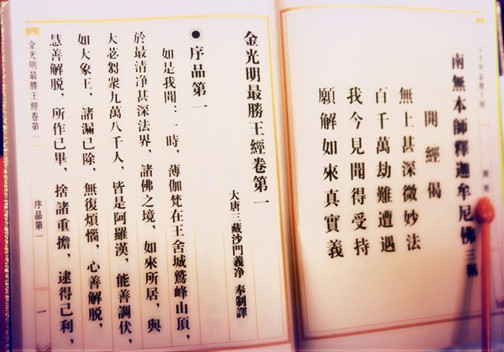 南無本師釋迦牟尼佛 三稱
開經偈
無上甚深微妙法
百千萬劫難遭遇
我今見聞得受持
願解如來真實義
金光明最勝王經卷第一
大唐三藏沙門義净 奉制譯
●序品第一
如是我聞：一時，薄伽梵在王舍城鷲峰山頂，
於最清净甚深法界，諸佛之境，如來所居，與
大苾芻衆九萬八千人，皆是阿羅漢，能善調伏，
如大象王，諸漏已除，無復煩惱，心善解脱，
慧善解脱，所作已畢，捨諸重擔，逮得己利，
金光明最勝王經卷第一 序品第一 一